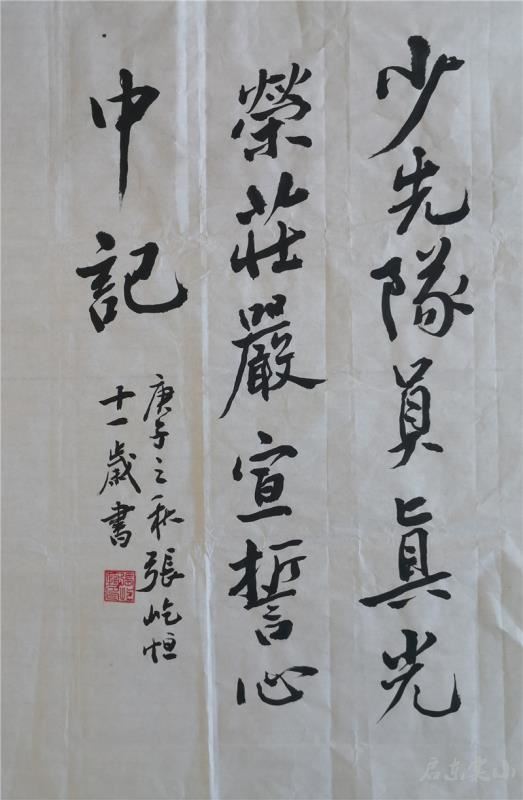 少先隊員真光
榮莊嚴宣誓心
中記
庚子之秋張屹恒
十一歲書